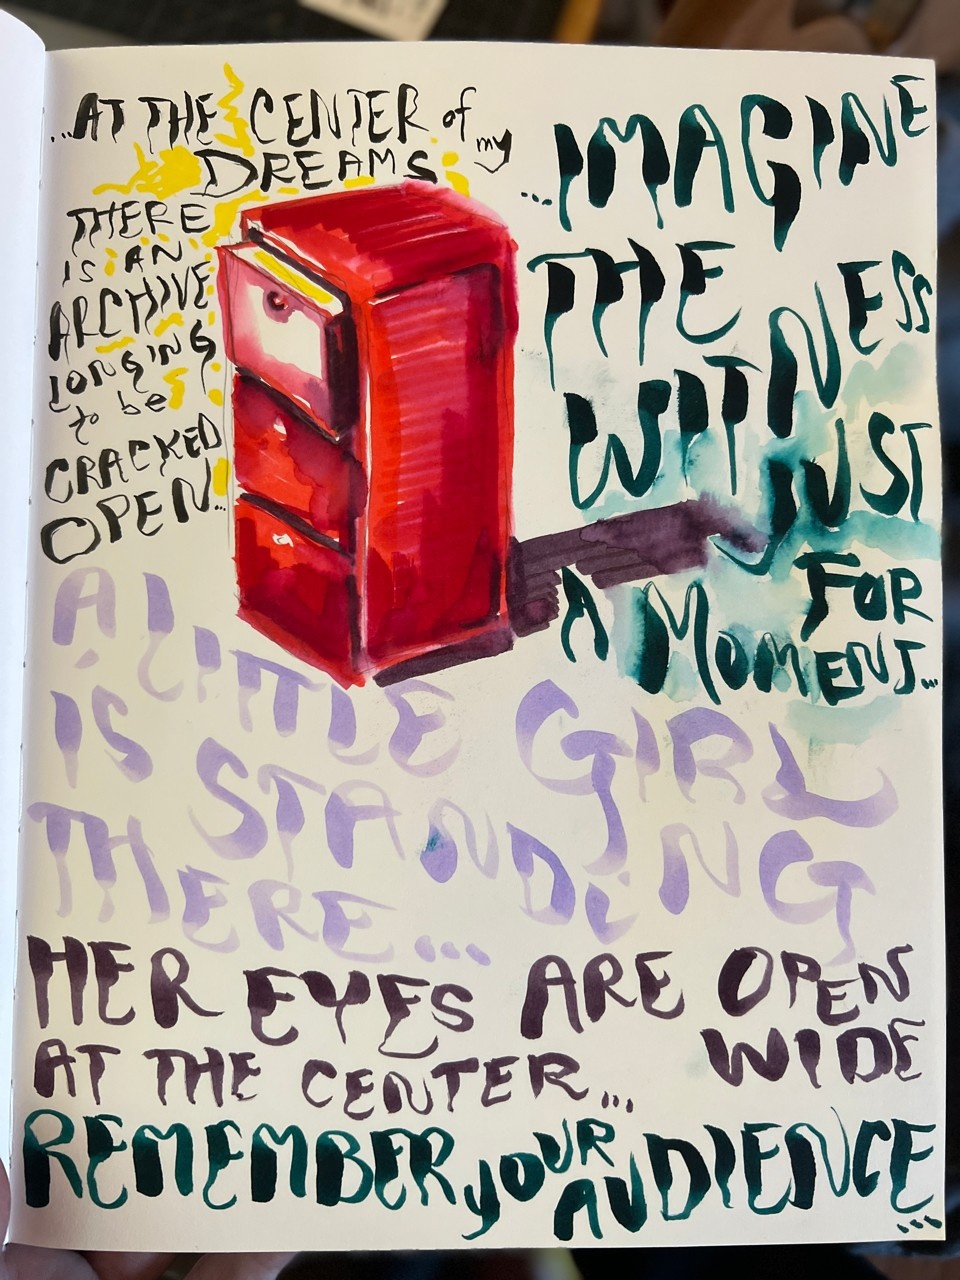 ...AT THE CENTER of my
DREAMS
THERE
IS AN
ARCHIVE
LONGING
to be
CRACKED
OPEN...
...IMAGINE
THE
WITNESS
JUST
FOR
A MOMENT...
A LITTLE GIRL
IS STANDING
THERE...
HER EYES ARE OPEN
WIDE
AT THE CENTER...
REMEMBER YOUR
AUDIENCE...